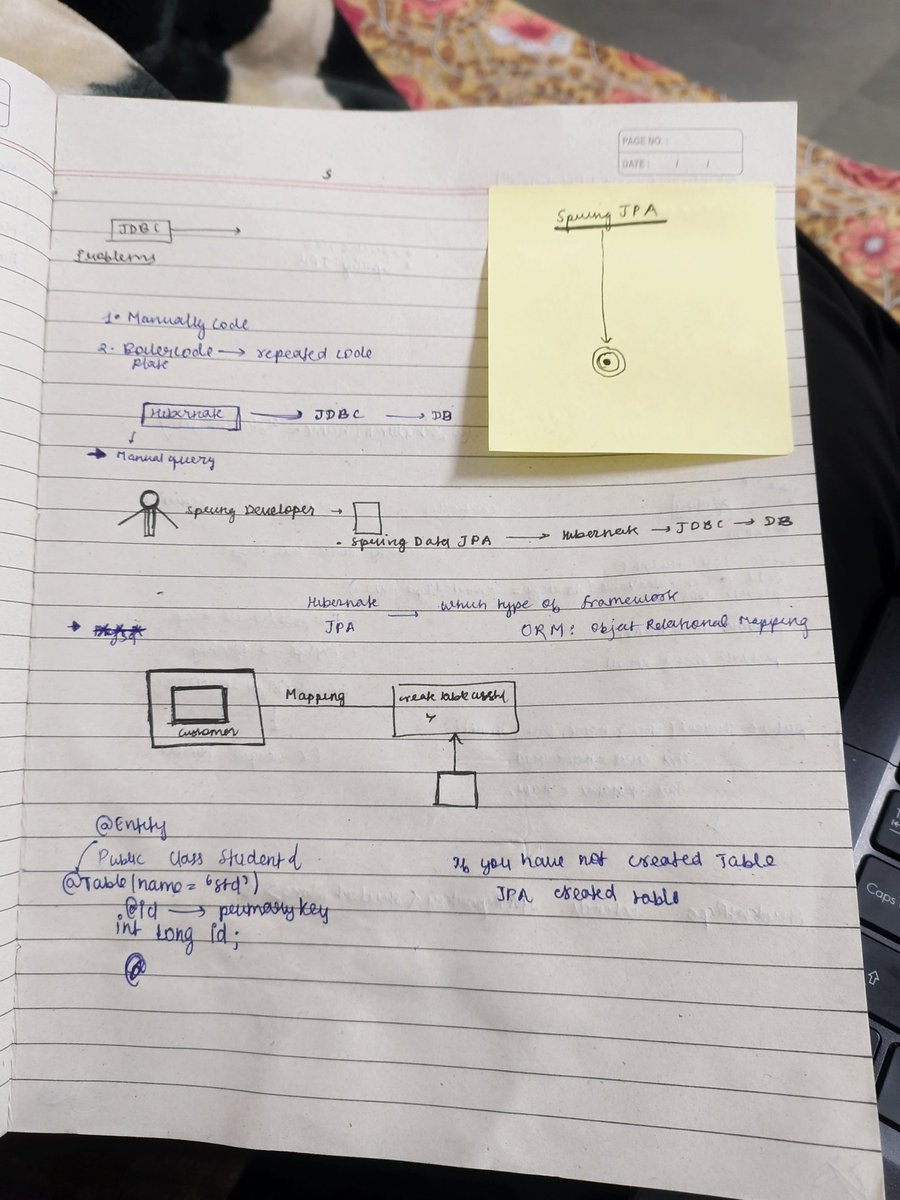 PAGE NO. :
DATE : / /
s
Spring JPA
JDBC
Problems
1. Manually code
2. Boilercode → repeated code
plate
Hibernate → JDBC → DB
↓
→ Manual query
Spring Developer →
. Spring Data JPA → Hibernate → JDBC → DB
Hibernate → which type of framework
JPA
ORM : Object Relational Mapping
Mapping
create table
Customer
@Entity
Public Class Student {
@Table(name = "std")
.@id → primary key
int long id;
If you have not created Table
JPA created table
Caps